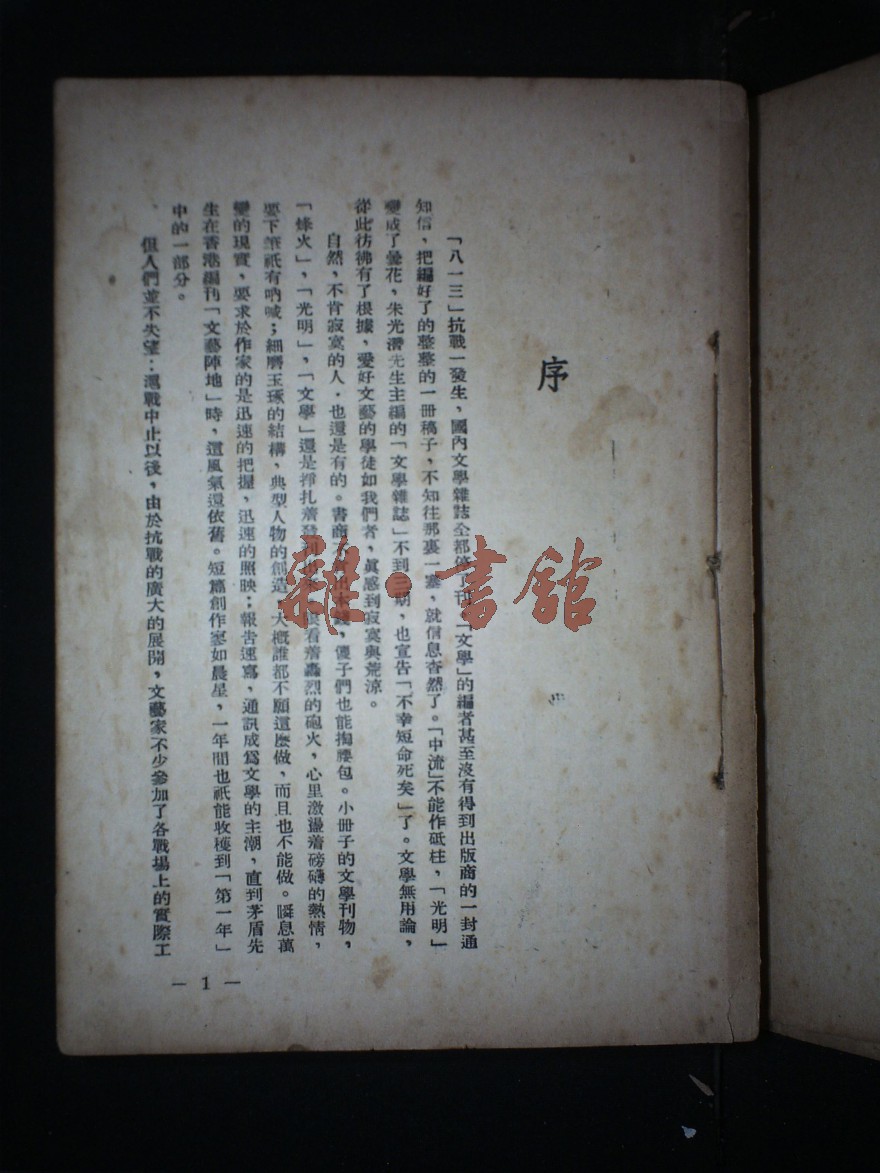 序
「八一三」抗戰一發生，國內文學雜誌全部停了刊。「文學」的編者甚至沒有得到出版商的一封通
知信，把編好了的整整的一冊稿子，不知往那裏一塞，就信息杳然了。「中流」不能作砥柱，「光明」
變成了曇花，朱光潛先生主編的「文學雜誌」不到三期，也宣告「不幸短命死矣」了。文學無用論，
從此彷彿有了根據，愛好文藝的學徒如我們者，眞感到寂寞與荒涼。
自然，不肯寂寞的人，也還是有的。書商不肯出本錢，傻子們也能掏腰包。小冊子的文學刊物，
「烽火」，「光明」，「文學」還是掙扎着發刊出來。眼看着轟烈的砲火，心里激盪着磅礴的熱情，
要下筆祇有吶喊；細磨玉琢的結構，典型人物的創造，大概誰都不願這麽做，而且也不能做。瞬息萬
變的現實，要求於作家的是迅速的把握，迅速的照映；報告速寫，通訊成爲文學的主潮，直到茅盾先
生在香港編刊「文藝陣地」時，這風氣還依舊。短篇創作寥如晨星，一年間也祇能收穫到「第一年」
中的一部分。
但人們並不失望：滬戰中止以後，由於抗戰的廣大的展開，文藝家不少參加了各戰場上的實際工
— 1 —
雜·書館